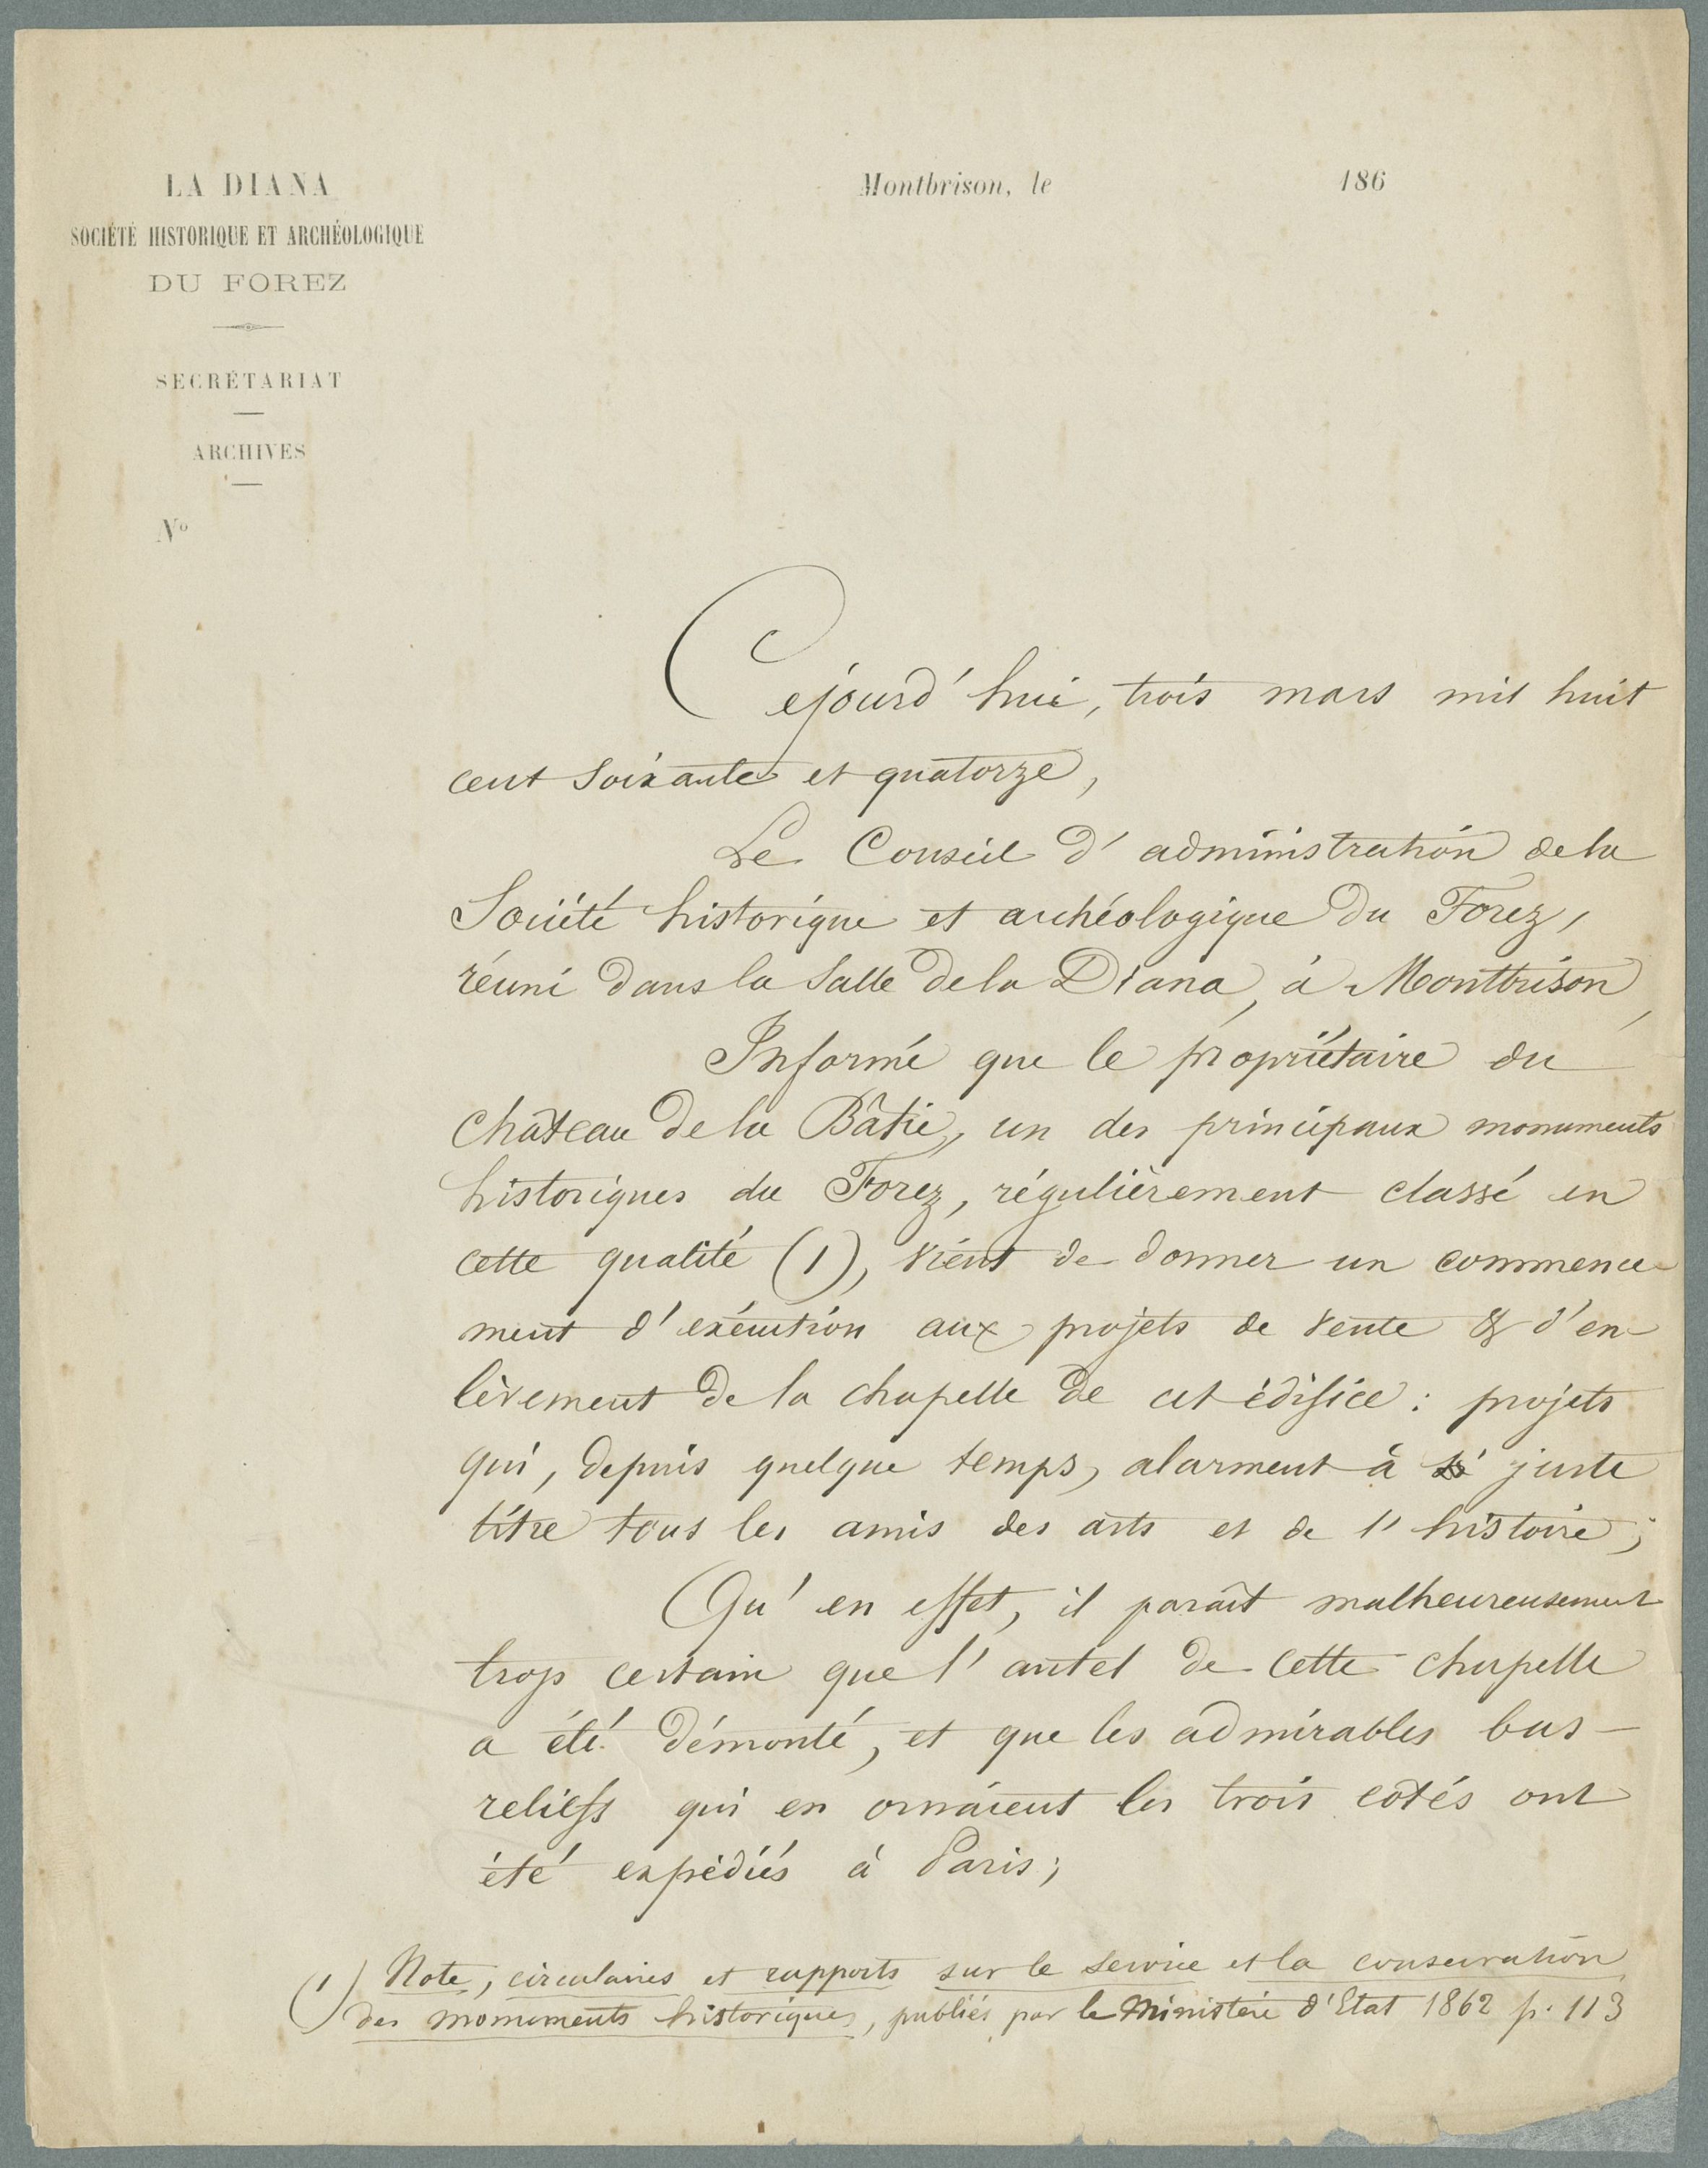 LA DIANA
SOCIÉTÉ HISTORIQUE ET ARCHÉOLOGIQUE
DU FOREZ
SECRÉTARIAT
ARCHIVES
Nº
Montbrison, le 186
Cejourd'hui, trois mars mil huit
cent soixante et quatorze,
Le Conseil d'administration de la
Société historique et archéologique du Forez,
réuni dans la salle de la Diana, à Montbrison,
Informé que le propriétaire du
château de la Bâtie, un des principaux monuments
historiques du Forez, régulièrement classé en
cette qualité (1), vient de donner un commence-
ment d'exécution aux projets de vente & d'en-
lèvement de la chapelle de cet édifice : projets
qui, depuis quelque temps, alarment à si juste
titre tous les amis des arts et de l'histoire ;
Qu'en effet, il paraît malheureusement
trop certain que l'autel de cette chapelle
a été démonté, et que les admirables bas-
reliefs qui en ornaient les trois côtés ont
été expédiés à Paris ;
(1) Note, circulaires et rapports sur le service et la conservation
des monuments historiques, publiés par le Ministère d'Etat 1862 p. 113